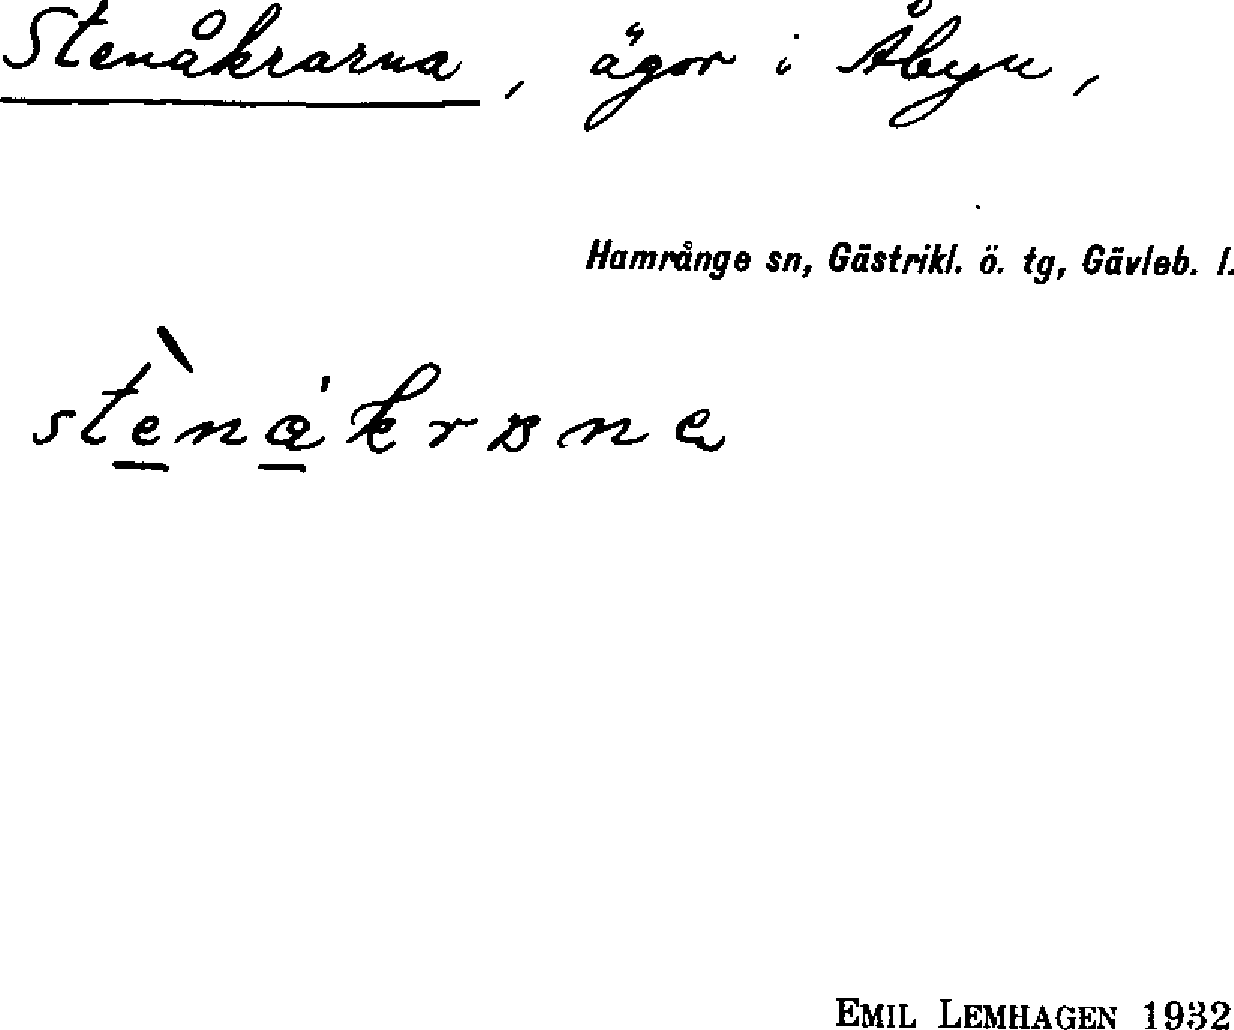 Stenåkrarna, ägor i Åbyn,
Hamrånge sn, Gästrikl. ö. tg, Gävleb. l.
EMIL LEMHAGEN 1932